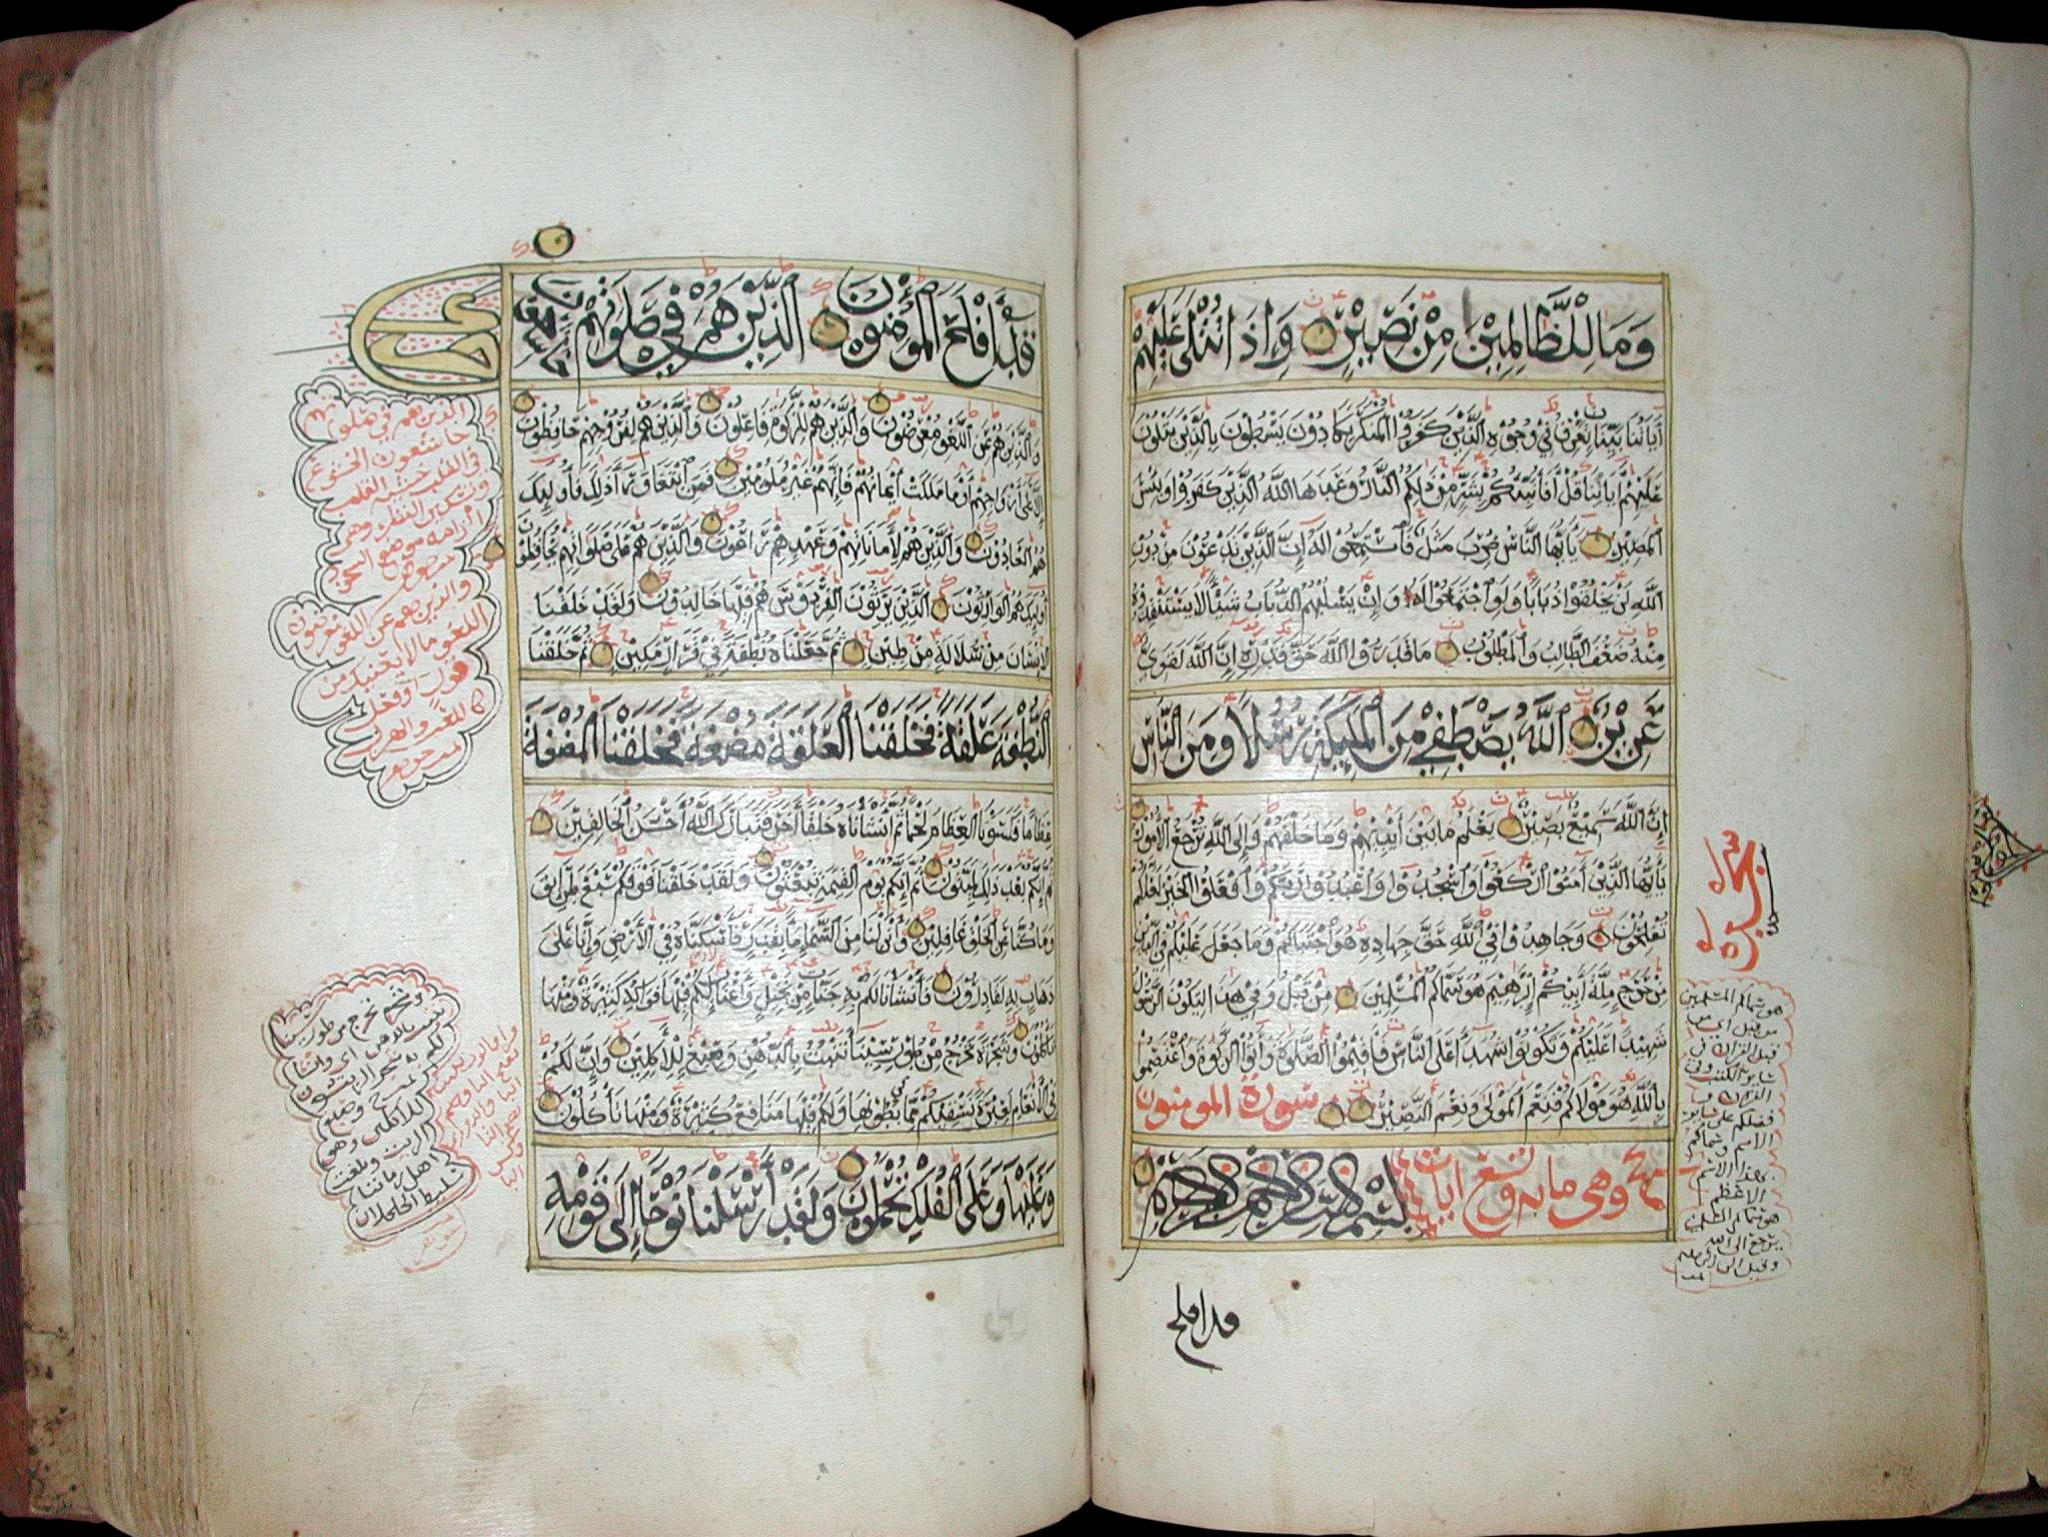 وَمَا لِلظَّالِمِينَ مِنْ نَصِيرٍ وَإِذَا تُتْلَى عَلَيْهِمْ
آيَاتُنَا بَيِّنَاتٍ تَعْرِفُ فِي وُجُوهِ الَّذِينَ كَفَرُوا الْمُنْكَرَ يَكَادُونَ يَسْطُونَ بِالَّذِينَ يَتْلُونَ
عَلَيْهِمْ آيَاتِنَا قُلْ أَفَأُنَبِّئُكُمْ بِشَرٍّ مِنْ ذَلِكُمُ النَّارُ وَعَدَهَا اللَّهُ الَّذِينَ كَفَرُوا وَبِئْسَ
الْمَصِيرُ يَا أَيُّهَا النَّاسُ ضُرِبَ مَثَلٌ فَاسْتَمِعُوا لَهُ إِنَّ الَّذِينَ تَدْعُونَ مِنْ دُونِ
اللَّهِ لَنْ يَخْلُقُوا ذُبَابًا وَلَوِ اجْتَمَعُوا لَهُ وَإِنْ يَسْلُبْهُمُ الذُّبَابُ شَيْئًا لَا يَسْتَنْقِذُوهُ
مِنْهُ ضَعُفَ الطَّالِبُ وَالْمَطْلُوبُ مَا قَدَرُوا اللَّهَ حَقَّ قَدْرِهِ إِنَّ اللَّهَ لَقَوِيٌّ
عَزِيزٌ اللَّهُ يَصْطَفِي مِنَ الْمَلَئِكَةِ رُسُلًا وَمِنَ النَّاسِ
إِنَّ اللَّهَ سَمِيعٌ بَصِيرٌ يَعْلَمُ مَا بَيْنَ أَيْدِيهِمْ وَمَا خَلْفَهُمْ وَإِلَى اللَّهِ تُرْجَعُ الْأُمُورُ
يَا أَيُّهَا الَّذِينَ آمَنُوا ارْكَعُوا وَاسْجُدُوا وَاعْبُدُوا رَبَّكُمْ وَافْعَلُوا الْخَيْرَ لَعَلَّكُمْ
تُفْلِحُونَ وَجَاهِدُوا فِي اللَّهِ حَقَّ جِهَادِهِ هُوَ اجْتَبَاكُمْ وَمَا جَعَلَ عَلَيْكُمْ فِي الدِّينِ
مِنْ حَرَجٍ مِلَّةَ أَبِيكُمْ إِبْرَاهِيمَ هُوَ سَمَّاكُمُ الْمُسْلِمِينَ مِنْ قَبْلُ وَفِي هَذَا لِيَكُونَ الرَّسُولُ
شَهِيدًا عَلَيْكُمْ وَتَكُونُوا شُهَدَاءَ عَلَى النَّاسِ فَأَقِيمُوا الصَّلَوةَ وَآتُوا الزَّكَوةَ وَاعْتَصِمُوا
بِاللَّهِ هُوَ مَوْلَاكُمْ فَنِعْمَ الْمَوْلَى وَنِعْمَ النَّصِيرُ سورة المومنون
وهي مايه وتسع ايات بسم الله الرحمن الرحيم
قد افلح
سجدة
هو سماكم المسلمين
من قبل اي من
قبل القرآن في
ساير الكتب وفي
القرآن
فضلكم على ساير
الامم وسماكم
بهذا الاسم
الاعظم
قَدْ أَفْلَحَ الْمُؤْمِنُونَ الَّذِينَ هُمْ فِي صَلَوتِهِمْ خَاشِعُونَ
وَالَّذِينَ هُمْ عَنِ اللَّغْوِ مُعْرِضُونَ وَالَّذِينَ هُمْ لِلزَّكَوةِ فَاعِلُونَ وَالَّذِينَ هُمْ لِفُرُوجِهِمْ حَافِظُونَ
إِلَّا عَلَى أَزْوَاجِهِمْ أَوْ مَا مَلَكَتْ أَيْمَانُهُمْ فَإِنَّهُمْ غَيْرُ مَلُومِينَ فَمَنِ ابْتَغَى وَرَاءَ ذَلِكَ فَأُولَئِكَ
هُمُ الْعَادُونَ وَالَّذِينَ هُمْ لِأَمَانَاتِهِمْ وَعَهْدِهِمْ رَاعُونَ وَالَّذِينَ هُمْ عَلَى صَلَوَاتِهِمْ يُحَافِظُونَ
أُولَئِكَ هُمُ الْوَارِثُونَ الَّذِينَ يَرِثُونَ الْفِرْدَوْسَ هُمْ فِيهَا خَالِدُونَ وَلَقَدْ خَلَقْنَا
الْإِنْسَانَ مِنْ سُلَالَةٍ مِنْ طِينٍ ثُمَّ جَعَلْنَاهُ نُطْفَةً فِي قَرَارٍ مَكِينٍ ثُمَّ خَلَقْنَا
النُّطْفَةَ عَلَقَةً فَخَلَقْنَا الْعَلَقَةَ مُضْغَةً فَخَلَقْنَا الْمُضْغَةَ
عِظَامًا فَكَسَوْنَا الْعِظَامَ لَحْمًا ثُمَّ أَنْشَأْنَاهُ خَلْقًا آخَرَ فَتَبَارَكَ اللَّهُ أَحْسَنُ الْخَالِقِينَ
ثُمَّ إِنَّكُمْ بَعْدَ ذَلِكَ لَمَيِّتُونَ ثُمَّ إِنَّكُمْ يَوْمَ الْقِيمَةِ تُبْعَثُونَ وَلَقَدْ خَلَقْنَا فَوْقَكُمْ سَبْعَ طَرَائِقَ
وَمَا كُنَّا عَنِ الْخَلْقِ غَافِلِينَ وَأَنْزَلْنَا مِنَ السَّمَاءِ مَاءً بِقَدَرٍ فَأَسْكَنَّاهُ فِي الْأَرْضِ وَإِنَّا عَلَى
ذَهَابٍ بِهِ لَقَادِرُونَ فَأَنْشَأْنَا لَكُمْ بِهِ جَنَّاتٍ مِنْ نَخِيلٍ وَأَعْنَابٍ لَكُمْ فِيهَا فَوَاكِهُ كَثِيرَةٌ وَمِنْهَا
تَأْكُلُونَ وَشَجَرَةً تَخْرُجُ مِنْ طُورِ سَيْنَاءَ تَنْبُتُ بِالدُّهْنِ وَصِبْغٍ لِلْآكِلِينَ وَإِنَّ لَكُمْ
فِي الْأَنْعَامِ لَعِبْرَةً نُسْقِيكُمْ مِمَّا فِي بُطُونِهَا وَلَكُمْ فِيهَا مَنَافِعُ كَثِيرَةٌ وَمِنْهَا تَأْكُلُونَ
وَعَلَيْهَا وَعَلَى الْفُلْكِ تُحْمَلُونَ وَلَقَدْ أَرْسَلْنَا نُوحًا إِلَى قَوْمِهِ
الذين هم في صلوتهم
خاشعون الخشوع
في القلب خشية القلب
موضع السجود
والذين هم عن اللغو معرضون
اللغو ما لا يعنيك من
قول او فعل